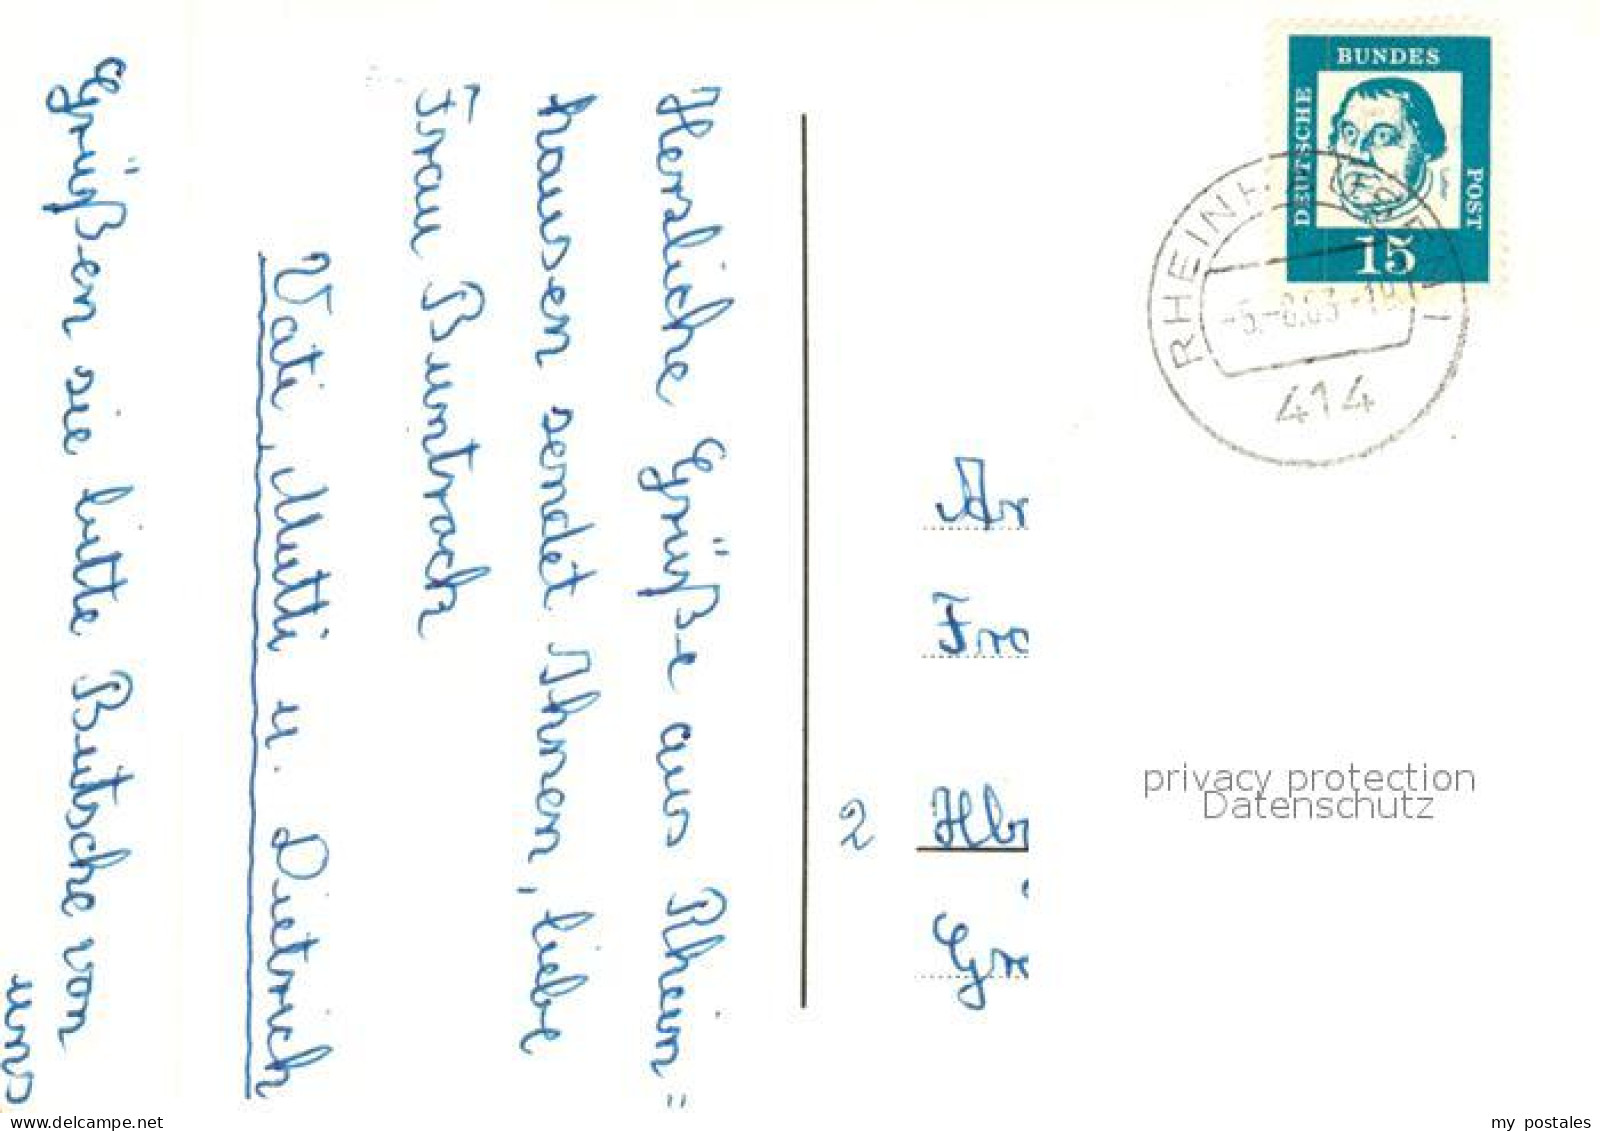 Herzliche Grüße aus Rhein=
hausen sendet Ihnen, liebe
Frau Buntrock
Vati, Mutti u. Dietrich
Grüßen sie bitte Butsche von
uns
DEUTSCHE
BUNDES
POST
15
RHEINH
414
An
Fra
2 Hbr
Gr
privacy protection
Datenschutz
www.delcampe.net
my_postales